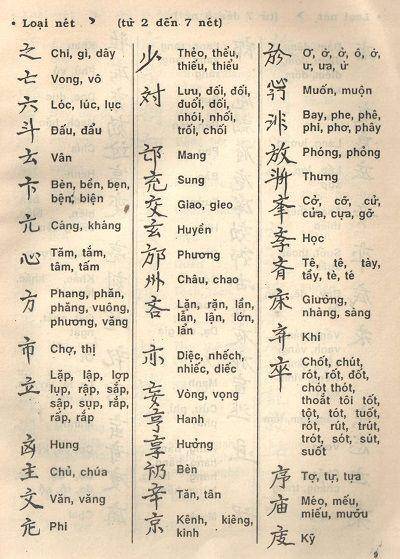 • Loại nét 丶 (từ 2 đến 7 nét)
之 Chi, gi, dây
亡 Vong, vô
六 Lóc, lúc, lục
斗 Đấu, đẩu
云 Vân
卞 Bèn, bền, bẹn,
bện, biện
亢 Cáng, kháng
心 Tăm, tắm,
tâm, tấm
方 Phang, phăn,
phăng, vuông,
phương, văng
市 Chợ, thị
立 Lặp, lập, lợp
lụp, rập, sắp,
sập, sụp, rắp,
rấp, rắp
Hung
主 Chủ, chúa
文 Văn, văng
庀 Phi
少 Thẻo, thểu,
thiếu, thiểu
対 Lưu, đối, đổi,
đuổi, dối,
nhói, nhối,
trối, chối
邙 Mang
充 Sung
交 Giao, gieo
玄 Huyền
邡 Phương
州 Châu, chao
吝 Lặn, rặn, lần,
lẫn, lận, lớn,
lẩn
亦 Diệc, nhếch,
nhiếc, diếc
妄 Vòng, vọng
亨 Hanh
享 Hưởng
Bèn
辛 Tăn, tân
京 Kênh, kiêng,
kinh
於 Ơ, ở, ờ, ô, ớ,
ư, ưa, ứ
Muốn, muộn
Bay, phe, phê,
phi, phơ, phây
放 Phóng, phỏng
Thưng
Cở, cỡ, cử,
cửa, cựa, gỡ
Học
Tê, tề, tày,
tẩy, tè, té
床 Giường,
nhàng, sàng
弃 Khí
卒 Chốt, chút,
rót, rốt, đốt,
chót thót,
thoắt tôi tốt,
tột, tót, tuốt,
rót, rút, trút,
trót, sót, sút,
suốt
序 Tợ, tự, tựa
庙 Méo, mếu,
miếu, mướu
Kỹ